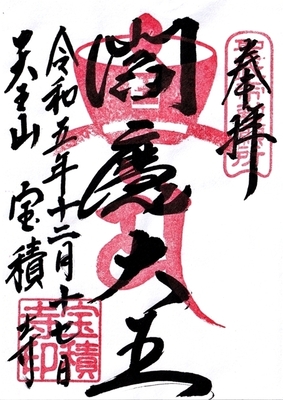 奉拝
閻魔大王
令和五年十二月十七日
天王山 宝積寺
宝積
寺印